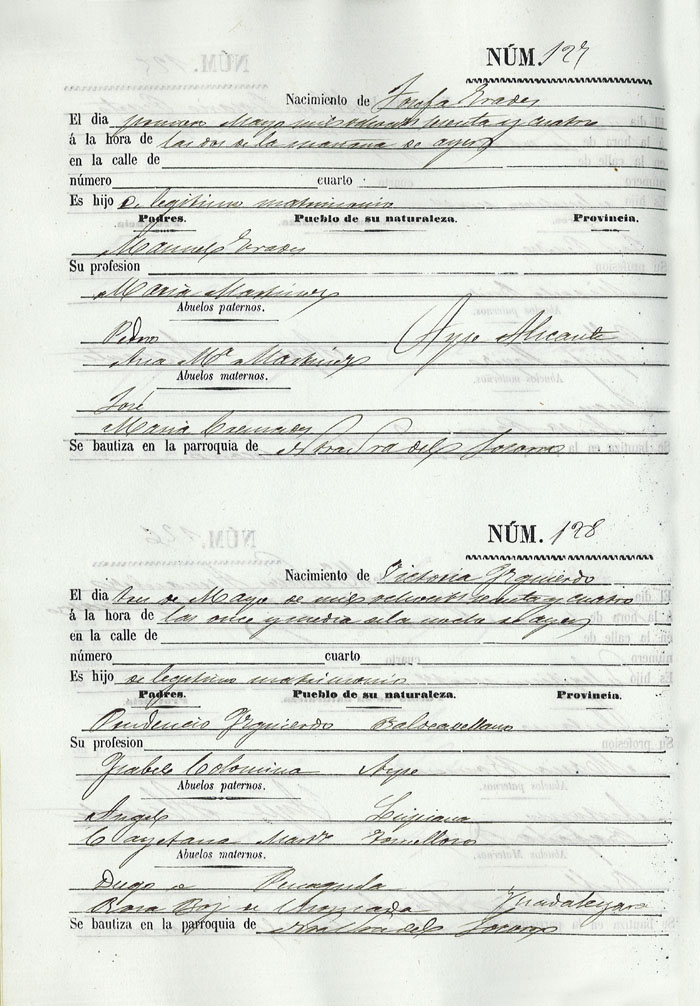 NÚM. 127
Nacimiento de Josefa Prades
El dia primero Mayo mil ochocientos setenta y cuatro
á la hora de las dos de la mañana de ayer
en la calle de
número cuarto
Es hijo de legitimo matrimonio
Padres. Pueblo de su naturaleza. Provincia.
Manuel Prades
Su profesion
Maria Martinez
Abuelos paternos.
Pedro Aspe Alicante
Ana Mª Martinez
Abuelos maternos.
José
Maria Cremades
Se bautiza en la parroquia de Ntra Sra del Socorro
NÚM. 128
Nacimiento de Victoria Yzquierdo
El dia tres de Mayo de mil ochocients setenta y cuatro
á la hora de las once y media de la noche de ayer
en la calle de
número cuarto
Es hijo de legitimo matrimonio
Padres. Pueblo de su naturaleza. Provincia.
Prudencio Yzquierdo
Su profesion
Ysabel Colomina Aspe
Abuelos paternos.
Angel Lupiana
Cayetana
Abuelos maternos.
Diego
Rosa
Se bautiza en la parroquia de Ntra Sra del Socorro